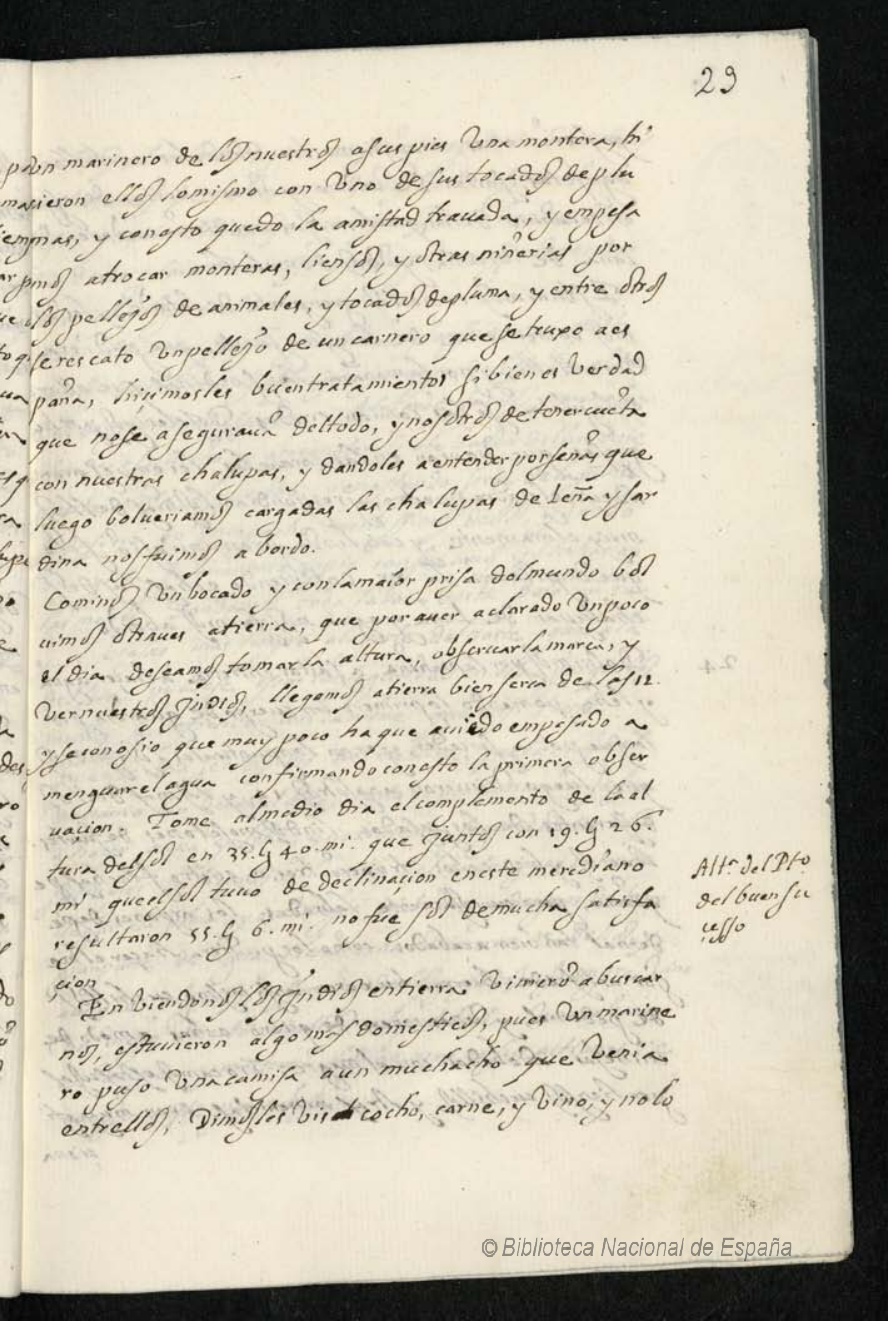 29
un marinero de los nuestros a sus pies Una montera, hi
sieron ellos lo mismo con Uno de sus tocados de plu
mas, y con esto quedo la amistad travada, y empesa
mos a trocar monteras, liensos, y otras niñerias por
los pellejos de animales, y tocados de pluma, y entre otros
se rescato Un pellejo de un carnero que se truxo a es
paña, hiçimosles buen tratamientos si bien es Verdad
que no se aseguravã del todo, y nosotros de tener cuẽta
con nuestras chalupas, y dandoles a entender por señas que
luego bolueriamos cargadas las chalupas de leña y sar
dina nos fuimos a bordo.
Comimos Un bocado y con la maior prisa del mundo bol
uimos otra ues a tierra, que por auer aclarado Un poco
el dia deseamos tomar la altura, obseruar la marea, y
Ver nuestros Jndios, llegamos a tierra bien serca de las 12.
y se conosio que muy poco ha que auiẽdo empesado a
menguar el agua confirmando con esto la primera obser
uaçion. Tome al medio dia el complemento de la al
tura del sol en 35. G 40. mi. que Juntos con 19. G 26.
mi que el sol tuuo de declinaçion en este meridiano
resultaron 55. G 6. mi. no fue sol de mucha satisfa
çion
En Viendonos los Jndios en tierra Vinierõ a buscar
nos, estuuieron algo mas domesticos, pues Un marine
ro puso Una camisa a un muchacho que Venia
entrellos, Dimosles viscocho, carne, y Vino, y no lo
Altª del Pto
del buen su
çesso
© Biblioteca Nacional de España